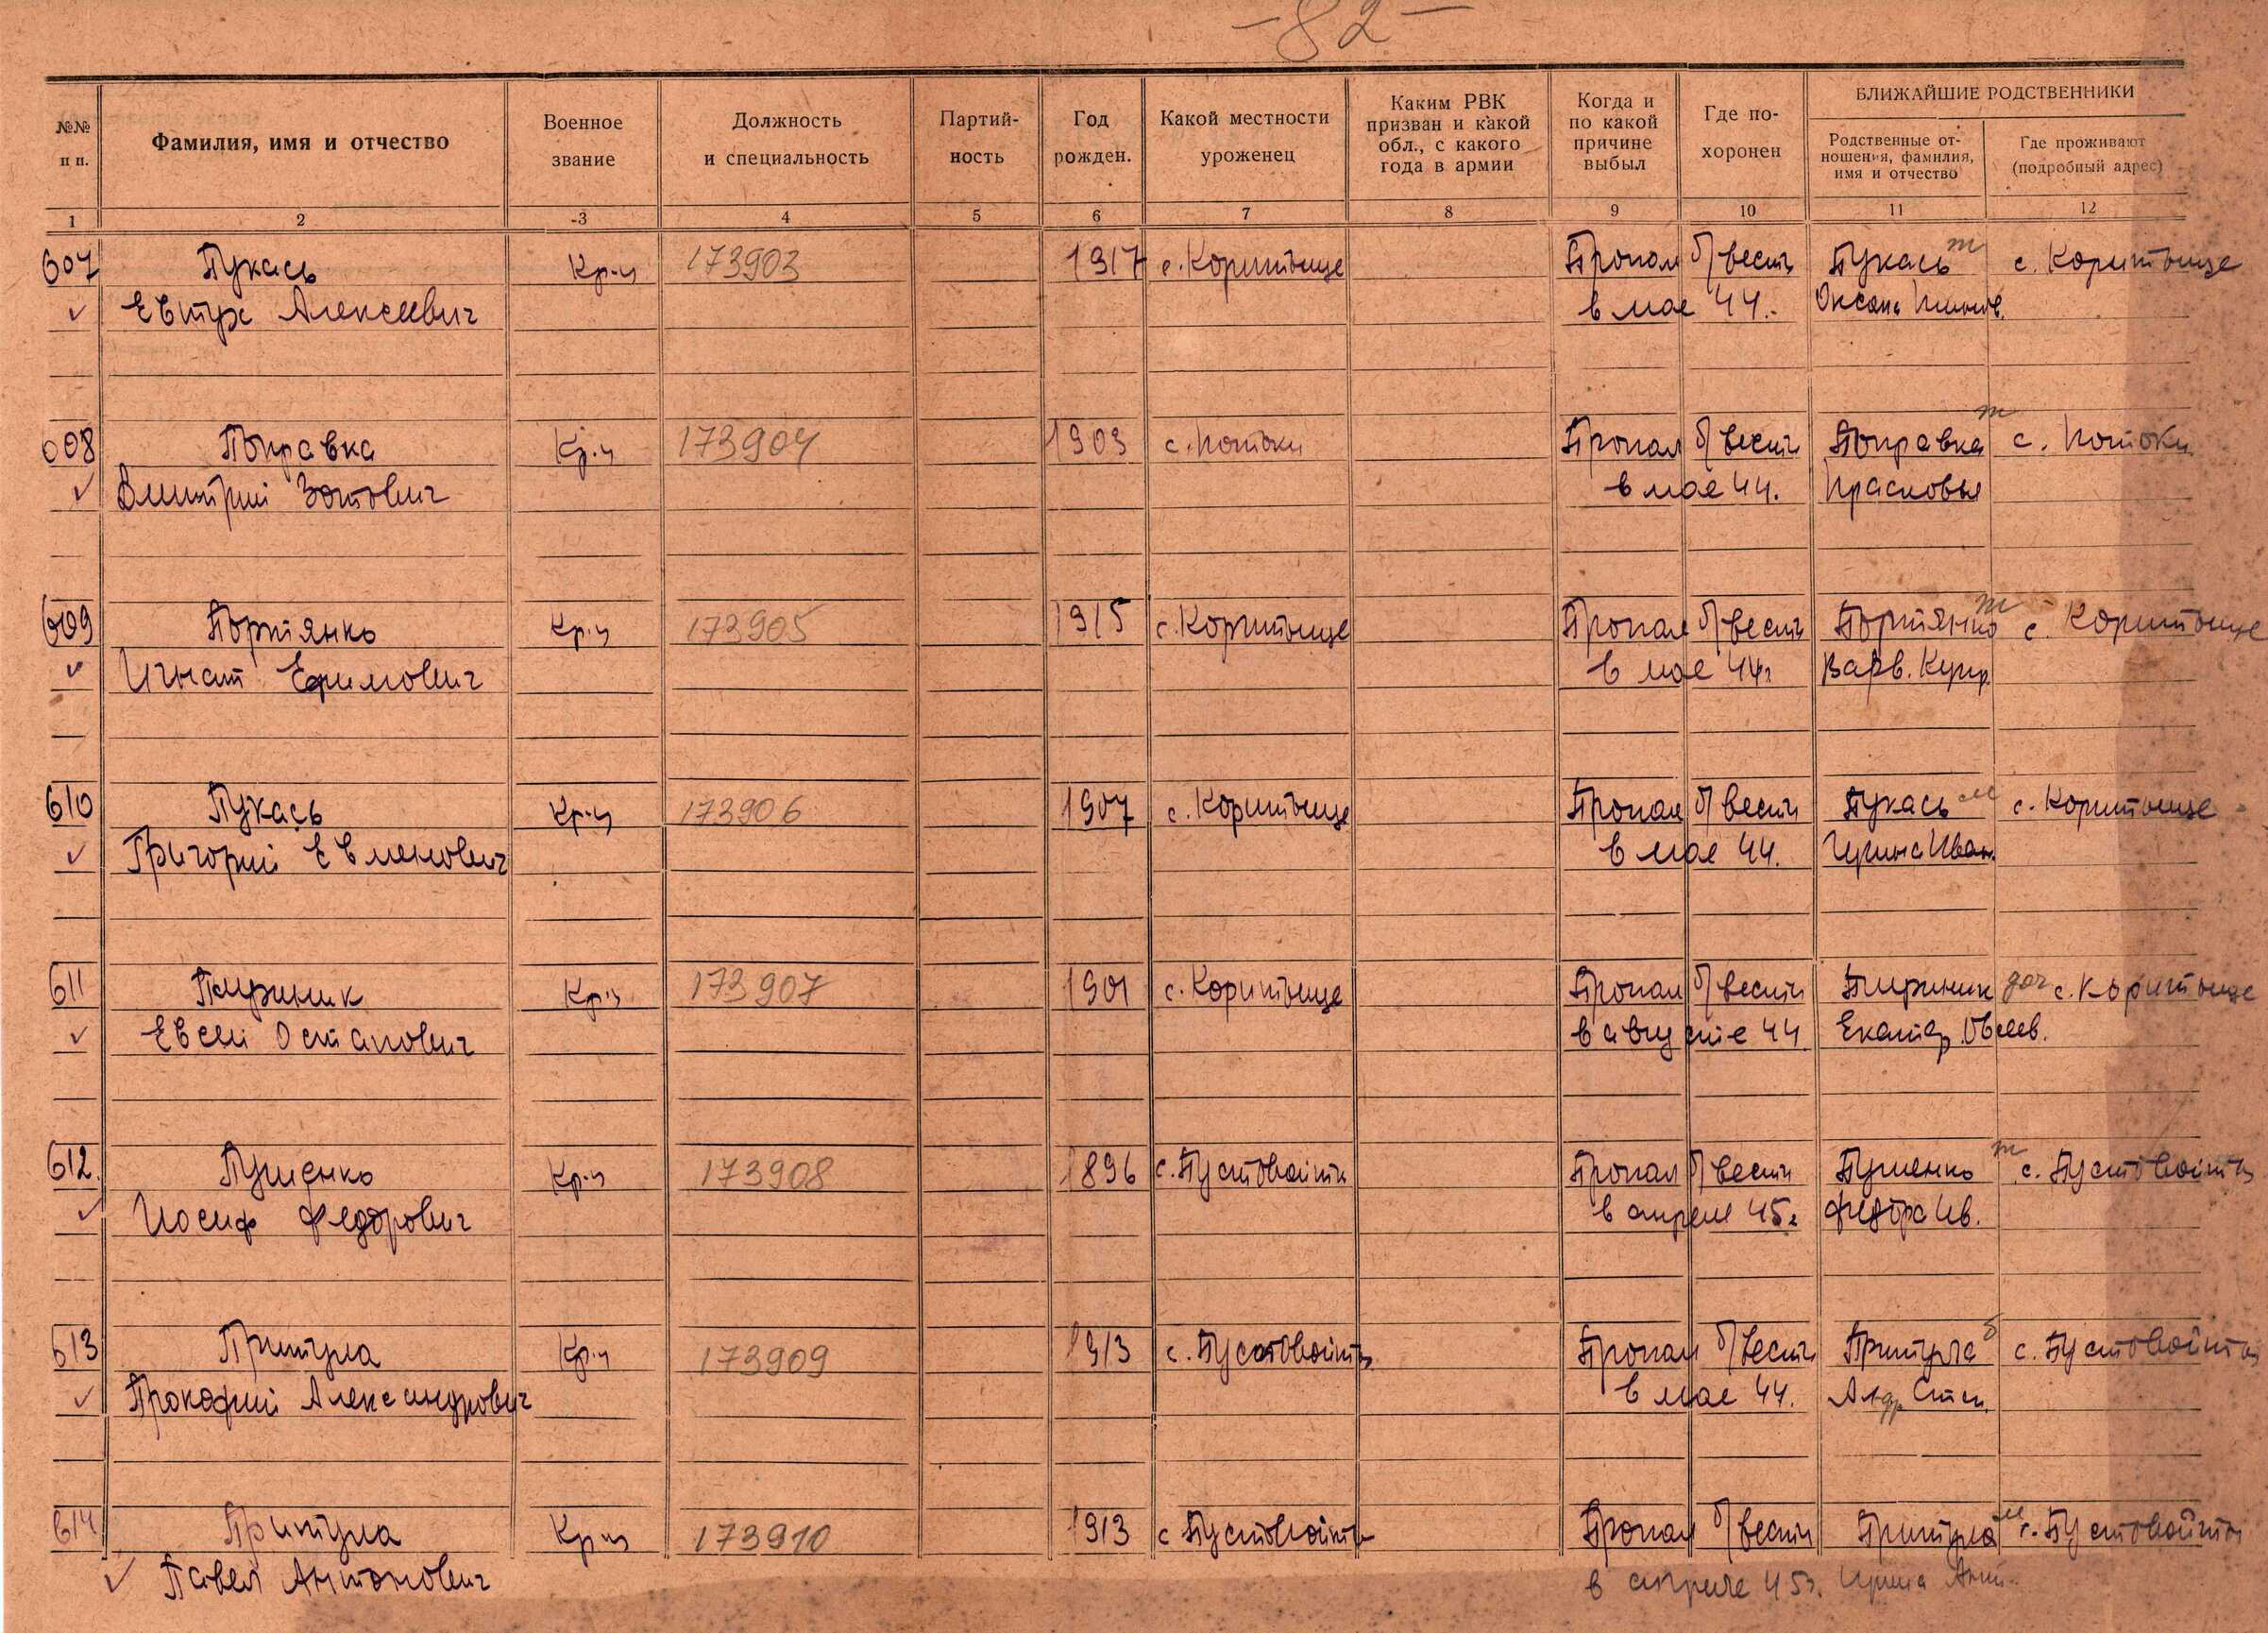 - 82 -
№№ п п.
Фамилия, имя и отчество
Военное звание
Должность и специальность
Партий-ность
Год рожден.
Какой местности уроженец
Каким РВК призван и какой обл., с какого года в армии
Когда и по какой причине выбыл
Где по-хоронен
БЛИЖАЙШИЕ РОДСТВЕННИКИ
Родственные от-ношения, фамилия, имя и отчество
Где проживают (подробный адрес)
1 2 3 4 5 6 7 8 9 10 11 12
607 Пукась Кр-ц 173903 1917 с. Коритыще Пропал б/вести Пукась с. Коритыще
Евтух Алексеевич в мае 44. Оксана
608 Поправка Кр-ц 173904 1903 с. Потоки Пропал б/вести Поправка с. Потоки
Дмитрий Зотович в мае 44. Прасковья
609 Портянко Кр-ц 173905 1915 с. Коритыще Пропал б/вести Портянко с. Коритыще
Игнат Ефимович в мае 44г Варв. Купр.
610 Пукась Кр-ц 173906 1907 с. Коритыще Пропал б/вести Пукась с. Коритыще
Григорий Евменович в мае 44. Иван.
611 Кр-ц 173907 1901 с. Коритыще Пропал б/вести доч с. Коритыще
Евсей Остапович в августе 44 Екатер. Овсеев.
612. Пушенко Кр-ц 173908 1896 с. Пустовойты Пропал б/вести Пушенко с. Пустовойты
Иосиф Федорович в апреле 45г Федора Ив.
613 Притула Кр-ц 173909 1913 с. Пустовойты Пропал б/вести Притула с. Пустовойты
Прокофий Александрович в мае 44.
614 Притула Кр-ц 173910 1913 с Пустовойты Пропал б/вести Притула с. Пустовойты
Павел Антонович в апреле 45г.